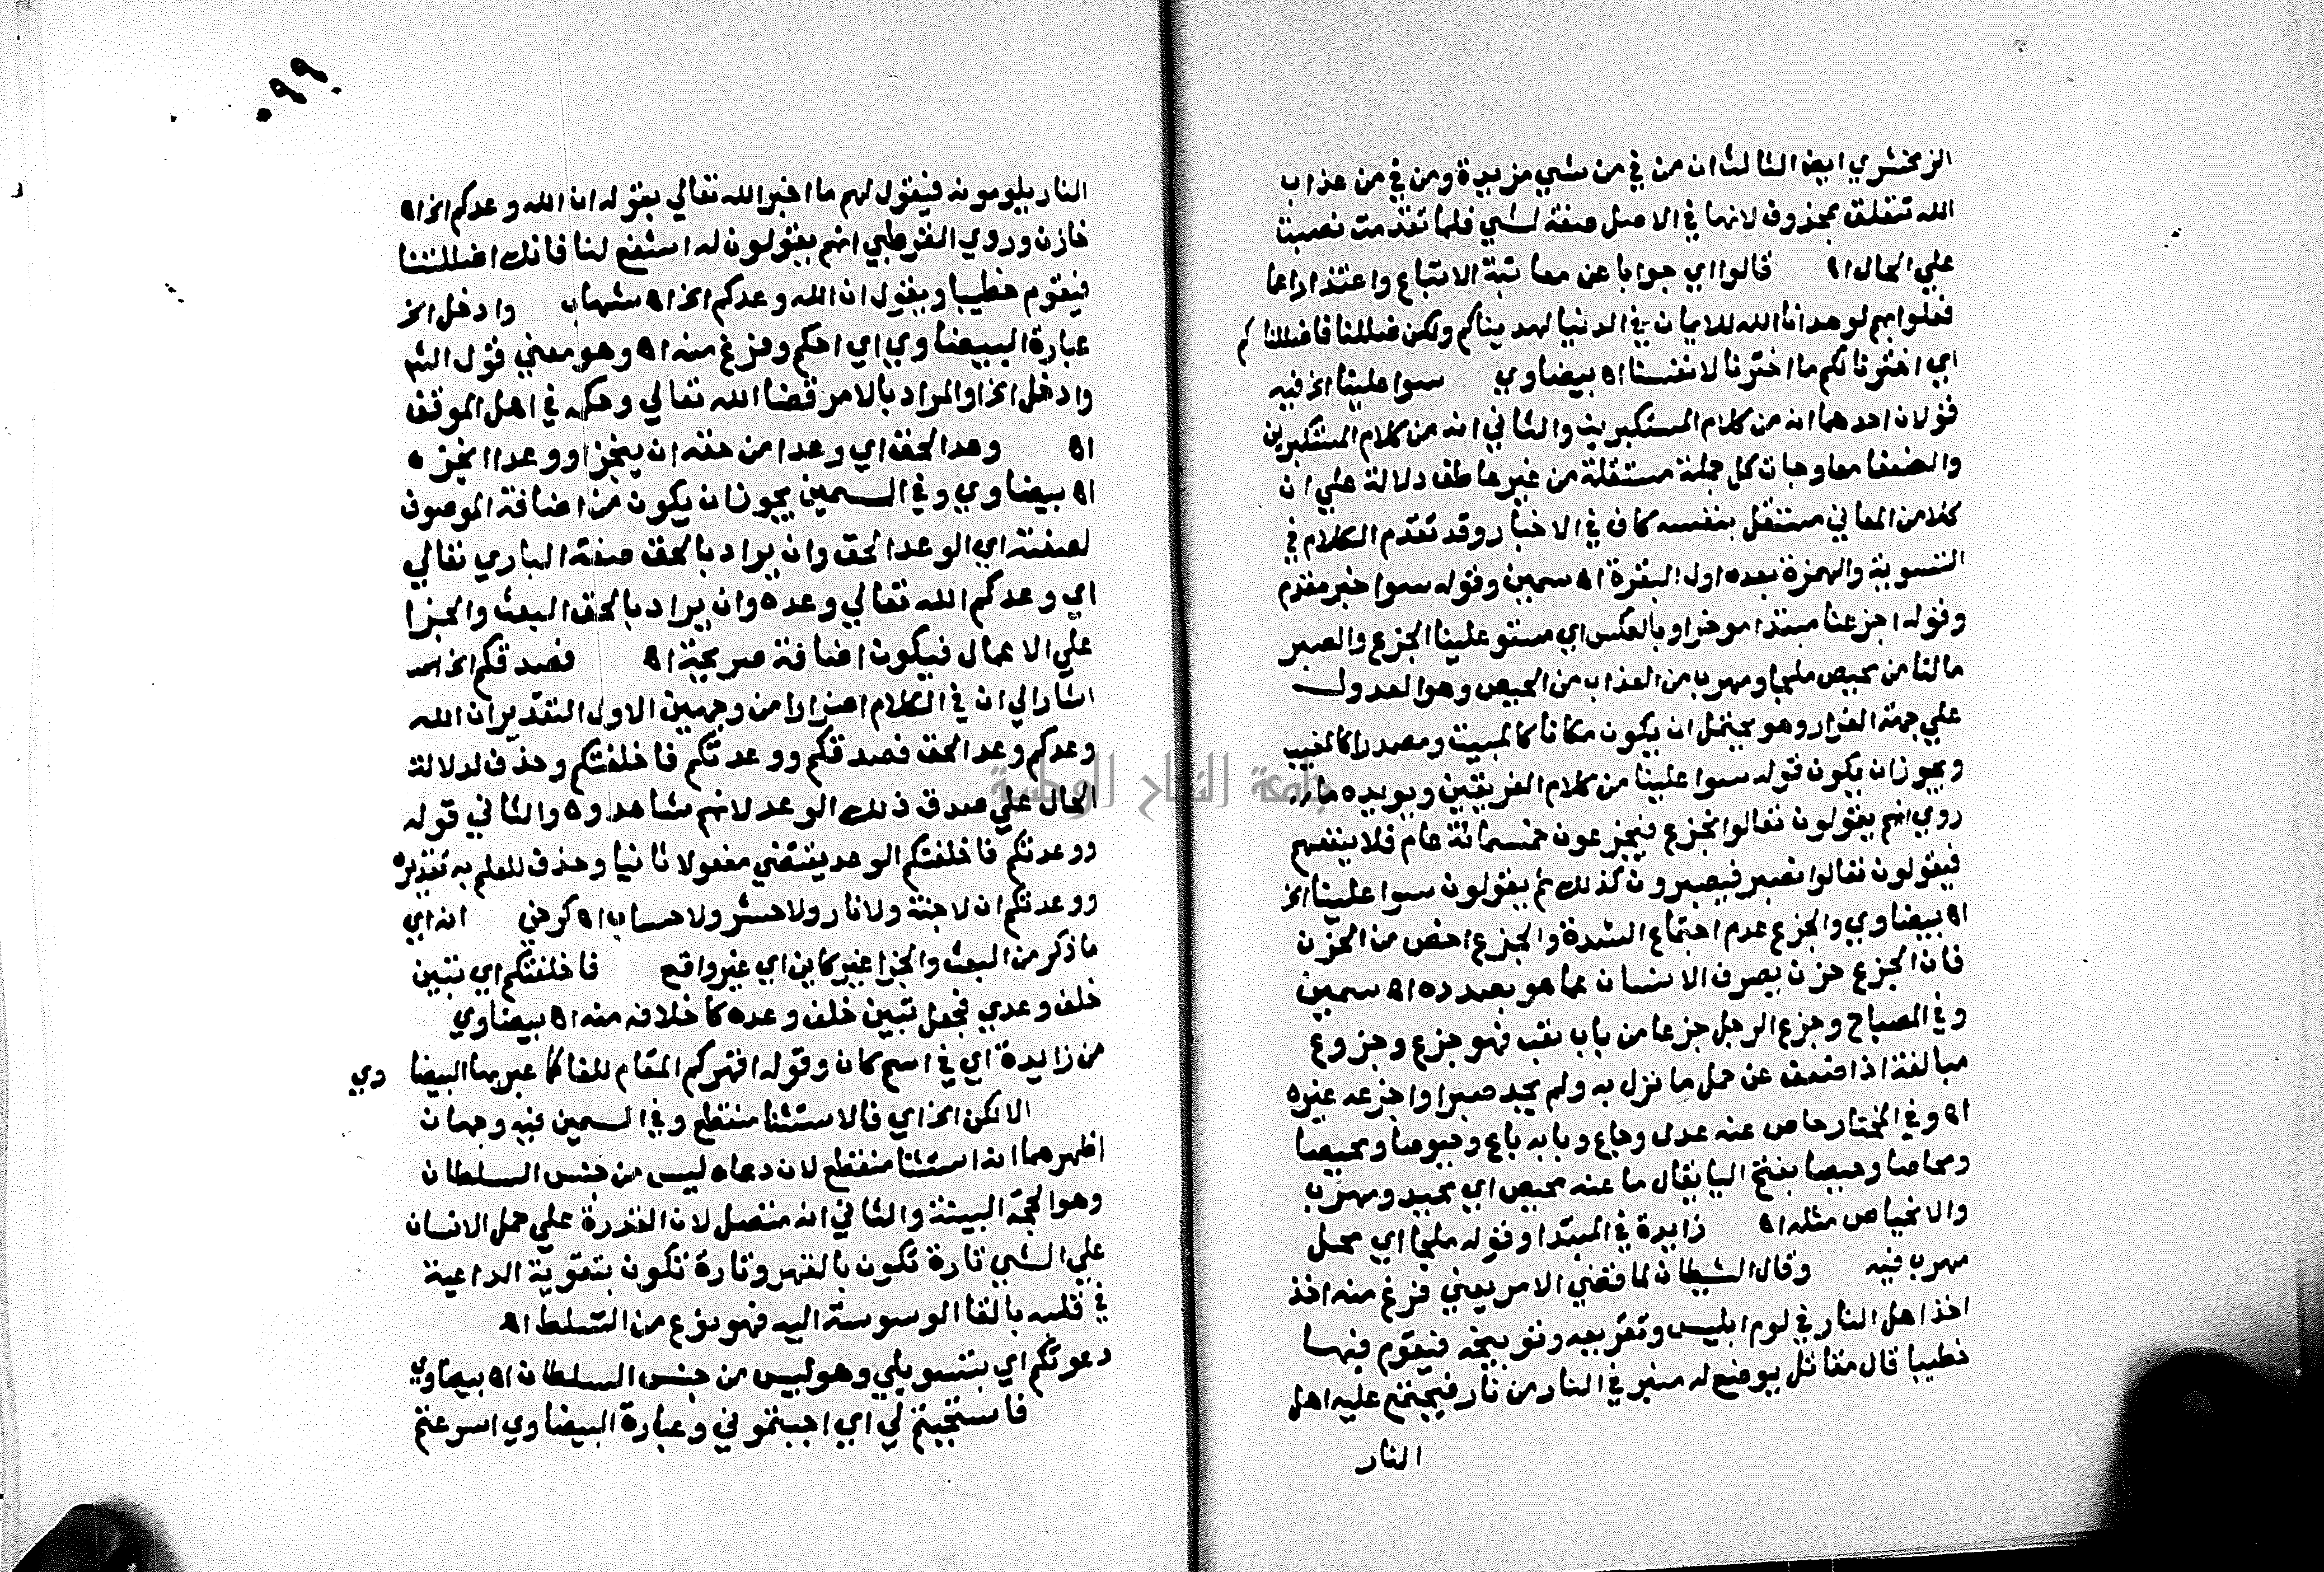 الزمخشري ايضا الثالث ان من في من شي مزيدة ومن في من عذاب
الله تتعلق بمحذوف لانها في الاصل صفة لشي فلما تقدمت نصبت
علي الحال اه قالوا اي جوابا عن معاتبة الاتباع واعتذارا عما
فعلوا بهم لو هدانا الله للايمان في الدنيا لهديناكم ولكن ضللنا فاضللناكم
اي اخترنا لكم ما اخترنا لانفسنا اه بيضاوي سوا علينا الخ فيه
قولان احدهما انه من كلام المستكبرين والثاني انه من كلام المستكبرين
والضعفا معا وجات كل جملة مستقلة من غير عاطف دلالة علي ان
كلا من المعاني مستقل بنفسه كاف في الاخبار وقد تقدم الكلام في
التسوية والهمزة بعده اول البقرة اه سمين وقوله سوا خبر مقدم
وقوله اجزعنا مبتدا موخر او بالعكس اي مستو علينا الجزع والصبر
مالنا من محيص ملجا ومهرب من العذاب من الحيص وهو العدول
علي جهة الفرار وهو يحتمل ان يكون مكانا كالمبيت ومصدرا كالمغيب
ويجوز ان يكون قوله سوا علينا من كلام الفريقين ويويده ما
روي انهم يقولون تعالوا نجزع فيجزعون خمسمائة عام فلا ينفعهم
فيقولون تعالوا نصبر فيصبرون كذلك ثم يقولون سوا علينا الخ
اه بيضاوي والجزع عدم احتماع الشدة والجزع اخص من الحزن
فان الجزع حزن يصرف الانسان عما هو بصدده اه سمين
وفي المصباح وجزع الرجل جزعا من باب تعب فهو جزع وجزوع
مبالغة اذا ضعف عن حمل ما نزل به ولم يجد صبرا واجزعه غيره
اه وفي المختار حاص عنه عدل وحاع وبابه باع وحيوصا ومحيصا
ومحاصا وحيصا بفتح اليا يقال ما عنه محيص اي محيد ومهرب
والانحياص مثله اه زايدة في المبتدا وقوله ملجا اي محل
مهرب فيه وقال الشيطان لما قضي الامر يعني فرغ منه اخذ
اخذ اهل النار في لوم ابليس وتقريعه وتوبيخه فيقوم فيها
خطيبا قال مقاتل يوضع له منبر في النار من نار فيجتمع عليه اهل
النار
٠٩٩
النار يلومونه فيقول لهم ما اخبر الله تعالي بقوله ان الله وعدكم الخ اه
خازن وروي القرطبي انهم يقولون له استفع لنا فانك اضللتنا
فيقوم خطيبا ويقول ان الله وعدكم الخ اه شهاب وادخل الخ
عبارة البيضاوي اي احكم وفرغ منه اه وهو معني قول الشم
وادخل الخ او المراد بالامر قضا الله تعالي وحكمه في اهل الموقف
اه وعد الحق اي وعدا من حقه ان ينجز او وعدا انجزه
اه بيضاوي وفي السمين يجوز ان يكون من اضافة الموصوف
لصفته اي الوعد الحق وان يراد بالحق صفة الباري تعالي
اي وعدكم الله تعالي وعده وان يراد بالحق البعث والجزا
علي الاعمال فيكون اضافة صريحة اه فصدقكم الخ
اشار الي ان في الكلام اضمارا من وجهين الاول التقدير ان الله
وعدكم وعد الحق فصدقكم ووعدتكم فاخلفتكم وحذف لدلالة
الحال علي صدق ذلك الوعد لانهم شاهدوه والثاني قوله
ووعدتكم فاخلفتكم الوعد يقتضي مفعولا ثانيا وحذف للعلم به تقديره
ووعدتكم ان لا جنة ولا نار ولا حشر ولا حساب اه كرخي انه اي
ما ذكر من البعث والجزا غير كاين اي غير واقع فاخلفتكم اي تبين
خلف وعدي فجعل تبين خلف وعده كاخلافه منه اه بيضاوي
من زايدة اي في اسم كان وقوله اقهركم المقام للفا كما عبر بها البيضاوي
الا لكن الخ اي فالاستثنا منقطع وفي السمين فيه وجهان
اظهرهما انه استثنا منقطع لان دعاه ليس من جنس السلطان
وهو الحجة البينة والثاني انه متصل لان القدرة علي حمل الانسان
علي الشي تارة تكون بالقهر وتارة تكون بتقوية الداعية
في قلبه بالقا الوسوسة اليه فهو نوع من التسلط اه
دعوتكم اي بتسويلي وهو ليس من جنس السلطان اه بيضاوي
فاستجبتم لي اي اجبتموني وعبارة البيضاوي اسرعتم
جامعة النجاح الوطنية